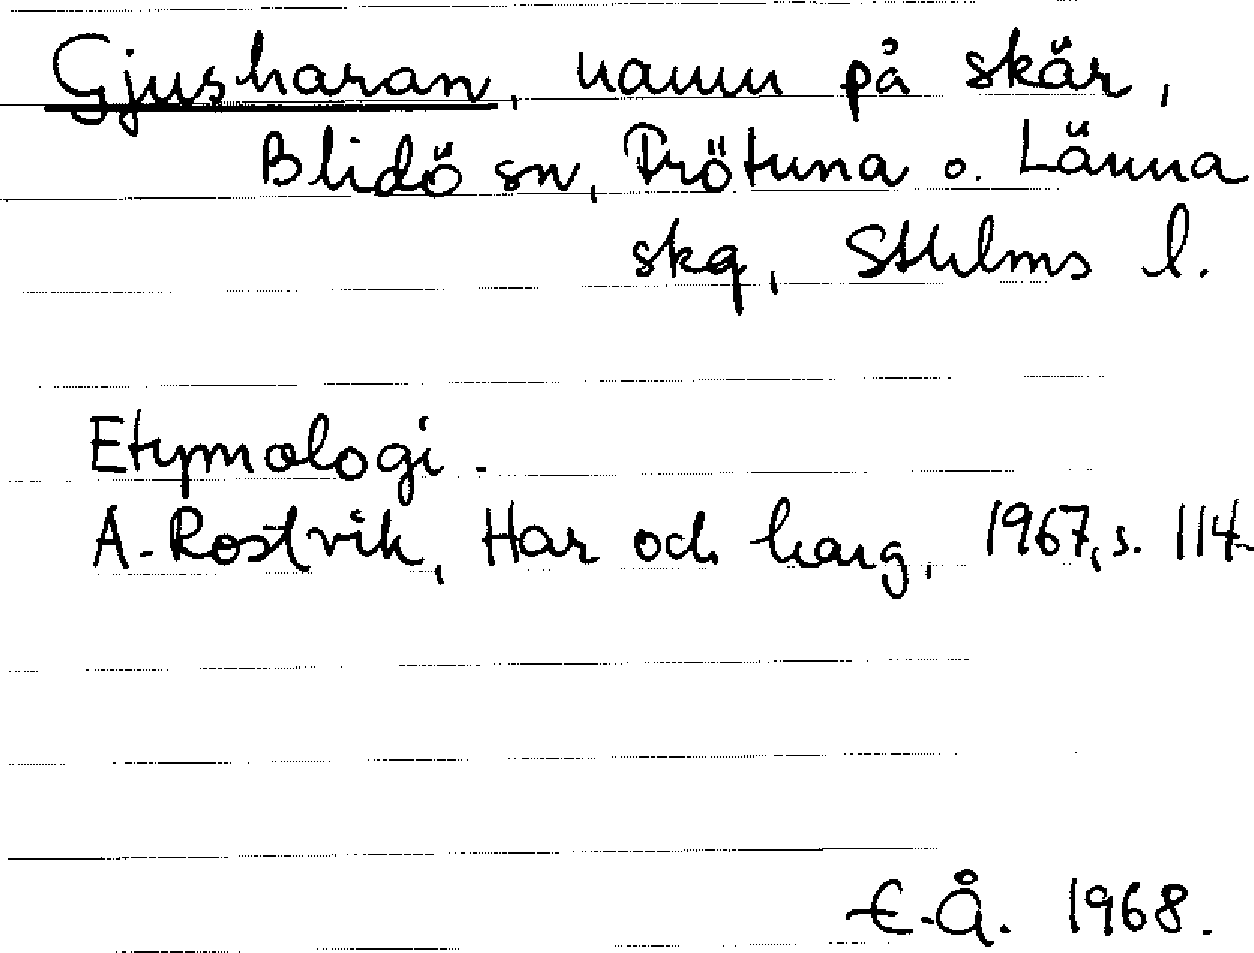 Gjusharan, namn på skär,
Blidö sn, Frötuna o. Länna
skg, Sthlms l.
Etymologi.
A. Rostvik, Har och harg, 1967, s. 114.
E.Å. 1968.